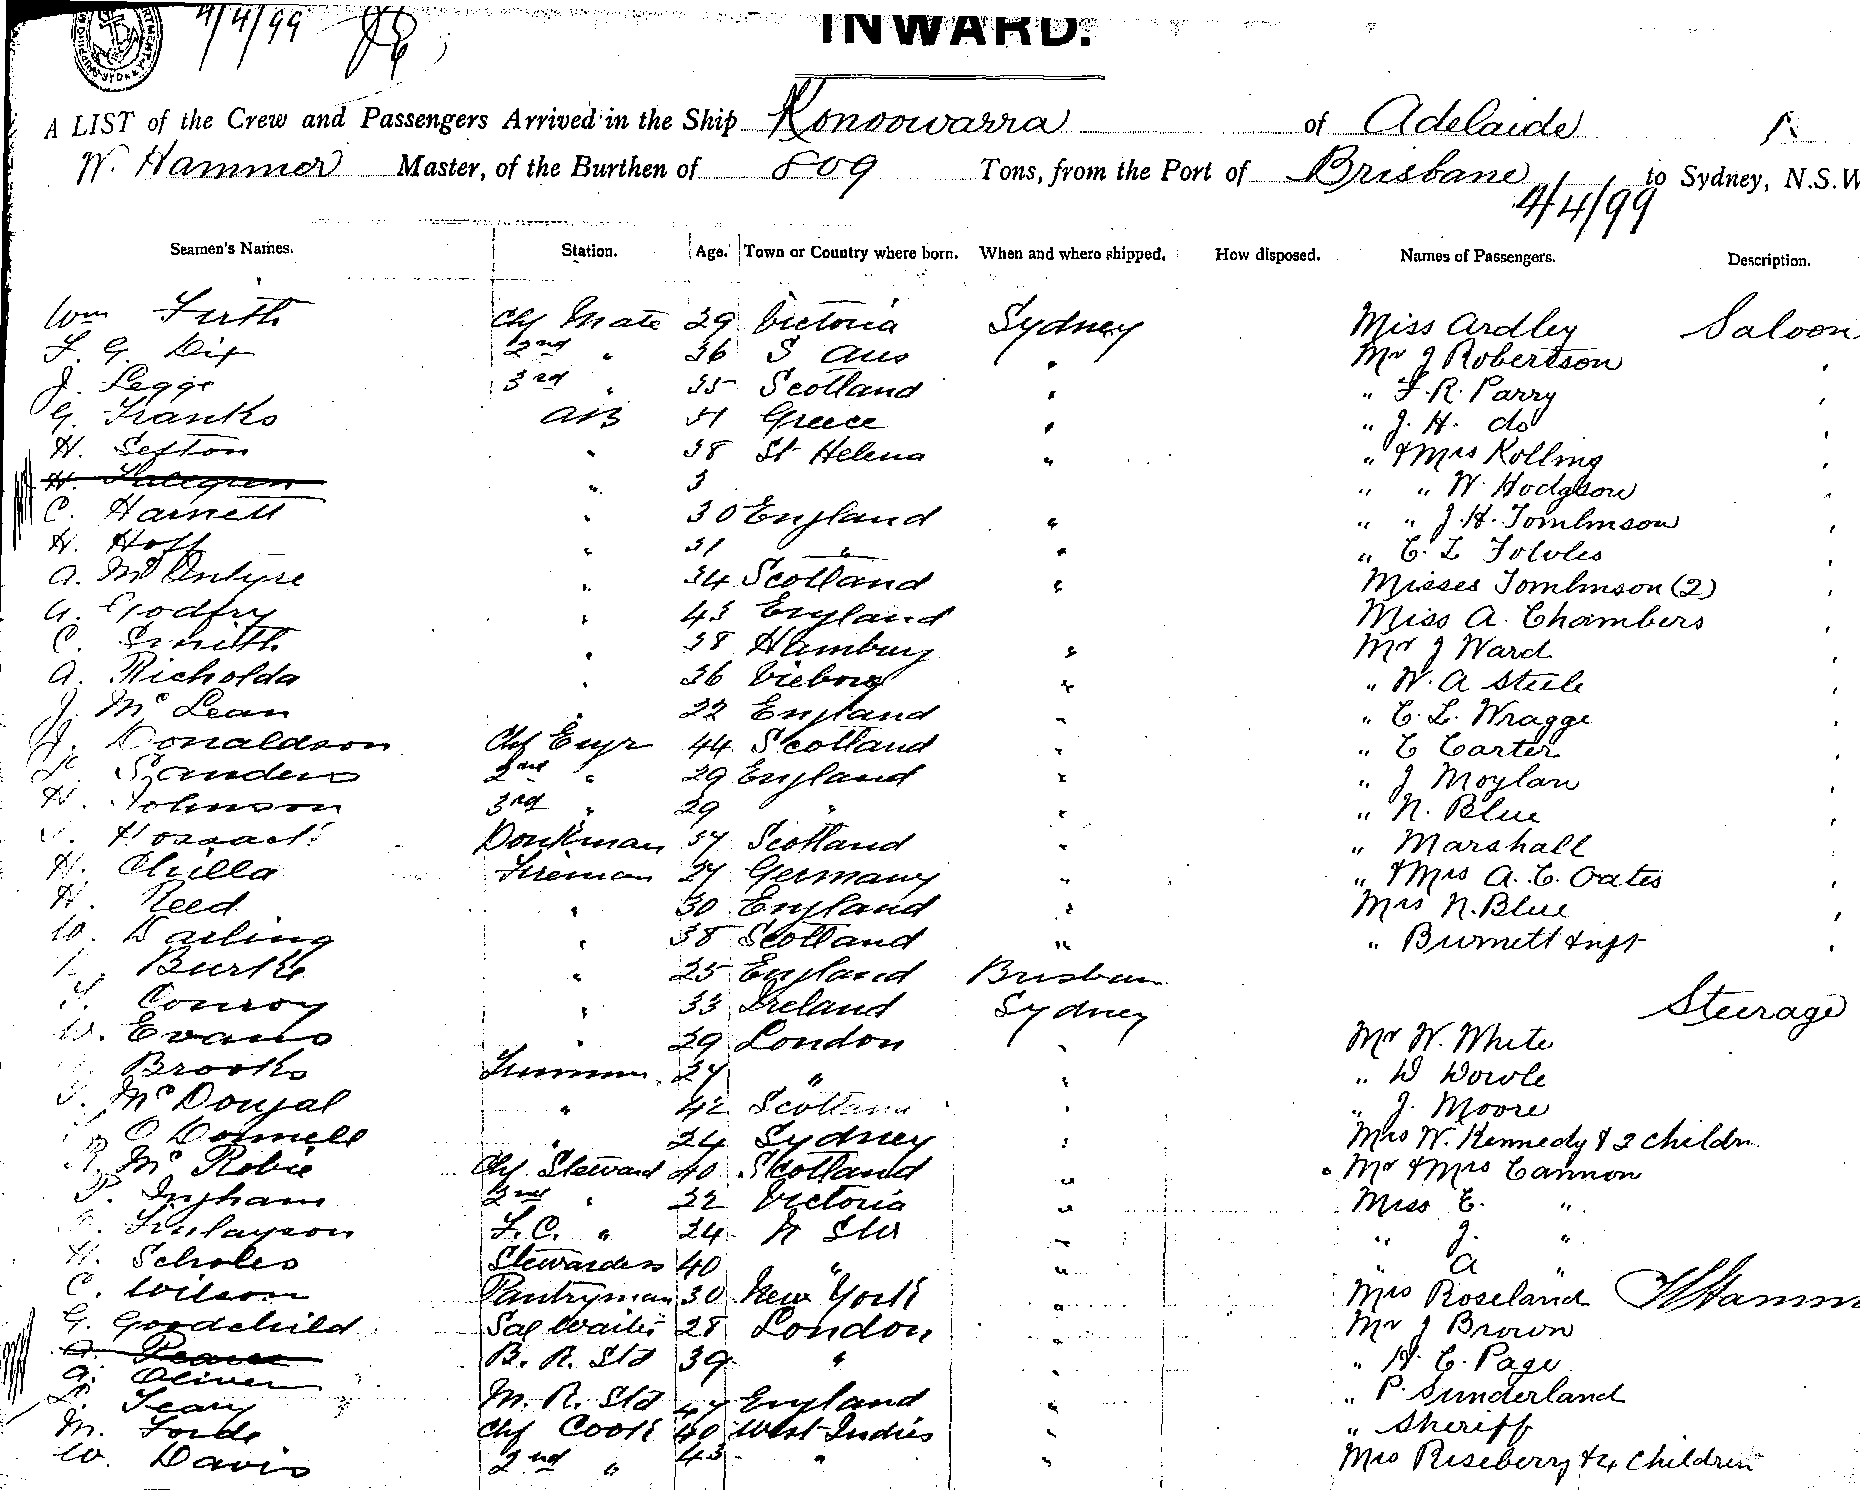 4/4/99
INWARD.
A LIST of the Crew and Passengers Arrived in the Ship Konoowarra of Adelaide
W. Hammer Master, of the Burthen of 809 Tons, from the Port of Brisbane to Sydney, N.S.W
4/4/99
Seamen's Names. Station. Age. Town or Country where born. When and where shipped. How disposed. Names of Passengers. Description.
Wm Firth Chf Mate 29 Victoria Sydney Miss Ardley Saloon
F. G. Dix 2nd " 36 S Aus " Mr J Robertson "
J. Legge 3rd " 35 Scotland " " F. R. Parry "
G. Franks AB 51 Greece " " J. H. do "
H. Sefton " 38 St Helena " " & Mrs Kolling "
H. " 3 " " W. Hodgson "
C. Harnett " 30 England " " " J. H. Tomlinson "
H. Hoff " 31 " " " C. L Fowles "
A. McIntyre " 34 Scotland " Misses Tomlinson (2) "
G. Godfry " 43 England Miss A. Chambers "
C. Smith " 38 Hamburg " Mr J Ward "
A. Richolda " 36 Viborg " " W. A Steele "
J. McLean " 22 England " " C. L. Wragge "
J. Donaldson Chf Engr 44 Scotland " " C Carter "
Sanders 2nd " 29 England " " J Moylan "
H. Johnson 3rd " 29 " " " N. Blue "
Donkman 37 Scotland " " Marshall "
H. Chilla Fireman 27 Germany " " & Mrs A. C. Oates "
H. Reed " 30 England " Mrs N. Blue "
W. Darling " 38 Scotland " " Burnett & inft "
Burke " 25 England Brisban
T. Conroy " 33 Ireland Sydney Steerage
W. Evans " 29 London " Mr W. White
Brooks Trimmer 27 " " " D Dowle
McDougal " 42 Scotland " " J. Moore
O Donnell " 24 Sydney " Mrs W. Kennedy & 2 childn
McRobie Chf Steward 40 Scotland " Mr & Mrs Cannon
P. Ingham 2nd " 22 Victoria " Miss E. "
Finlayson F.C. " 24 N SW " " J. "
H. Scholes Stewardess 40 " " " A "
C. Wilson Pantryman 30 New York " Mrs Roseland W Hamm
G. Goodchild Sal Waiter 28 London " Mr J Brown
B. R. Std 39 " " " H. C. Page
A. Oliver
Leary M. R. Std 47 England " " P. Sunderland
M. Forde Chf Cook 40 West Indies " " Sheriff
W. Davis 2nd " 43 " " Mrs Riseberry & 4 Children